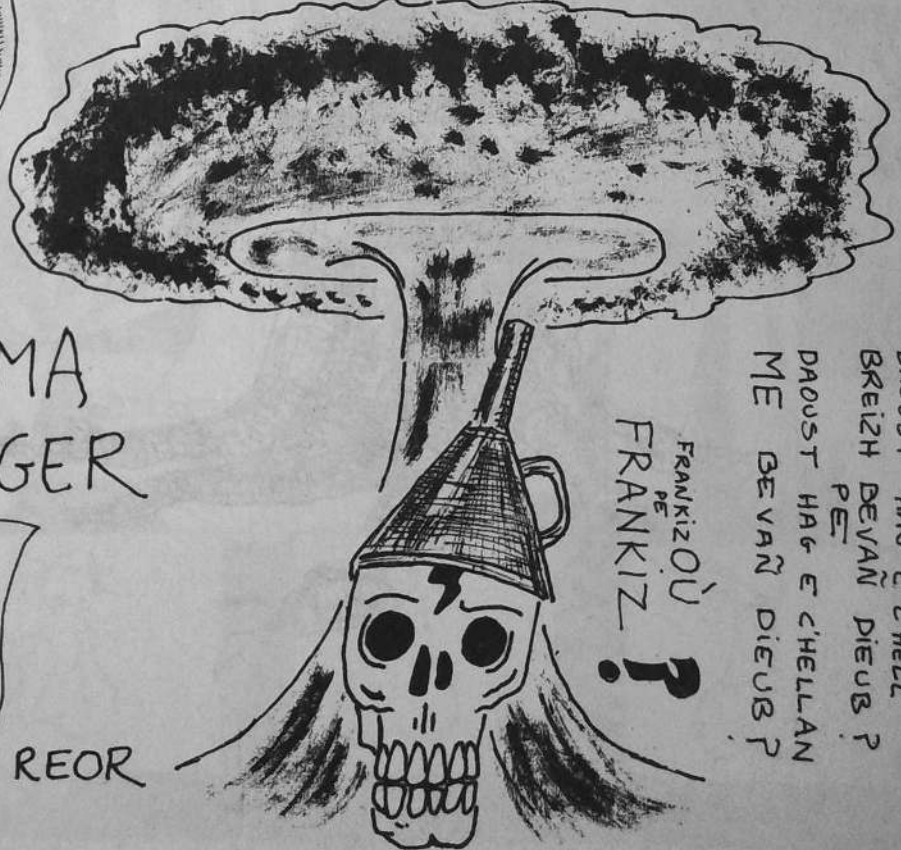 MA
GER
REOR
E C'HELL
BREIZH BEVAÑ DIEUB ?
PE
DAOUST HAG E C'HELLAN
ME BEVAÑ DIEUB ?
FRANKIZOÙ
PE
FRANKIZ ?